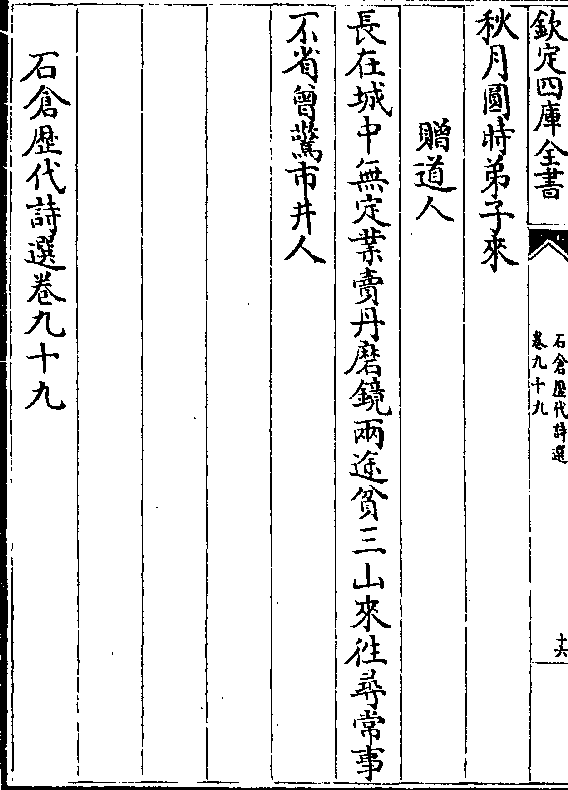 欽定四庫全書
石倉歷代詩選
卷九十九
十六
秋月圓時弟子來
贈道人
長在城中無定業賣丹磨鏡兩途貧三山來往尋常事
不省曾驚市井人
石倉歷代詩選卷九十九